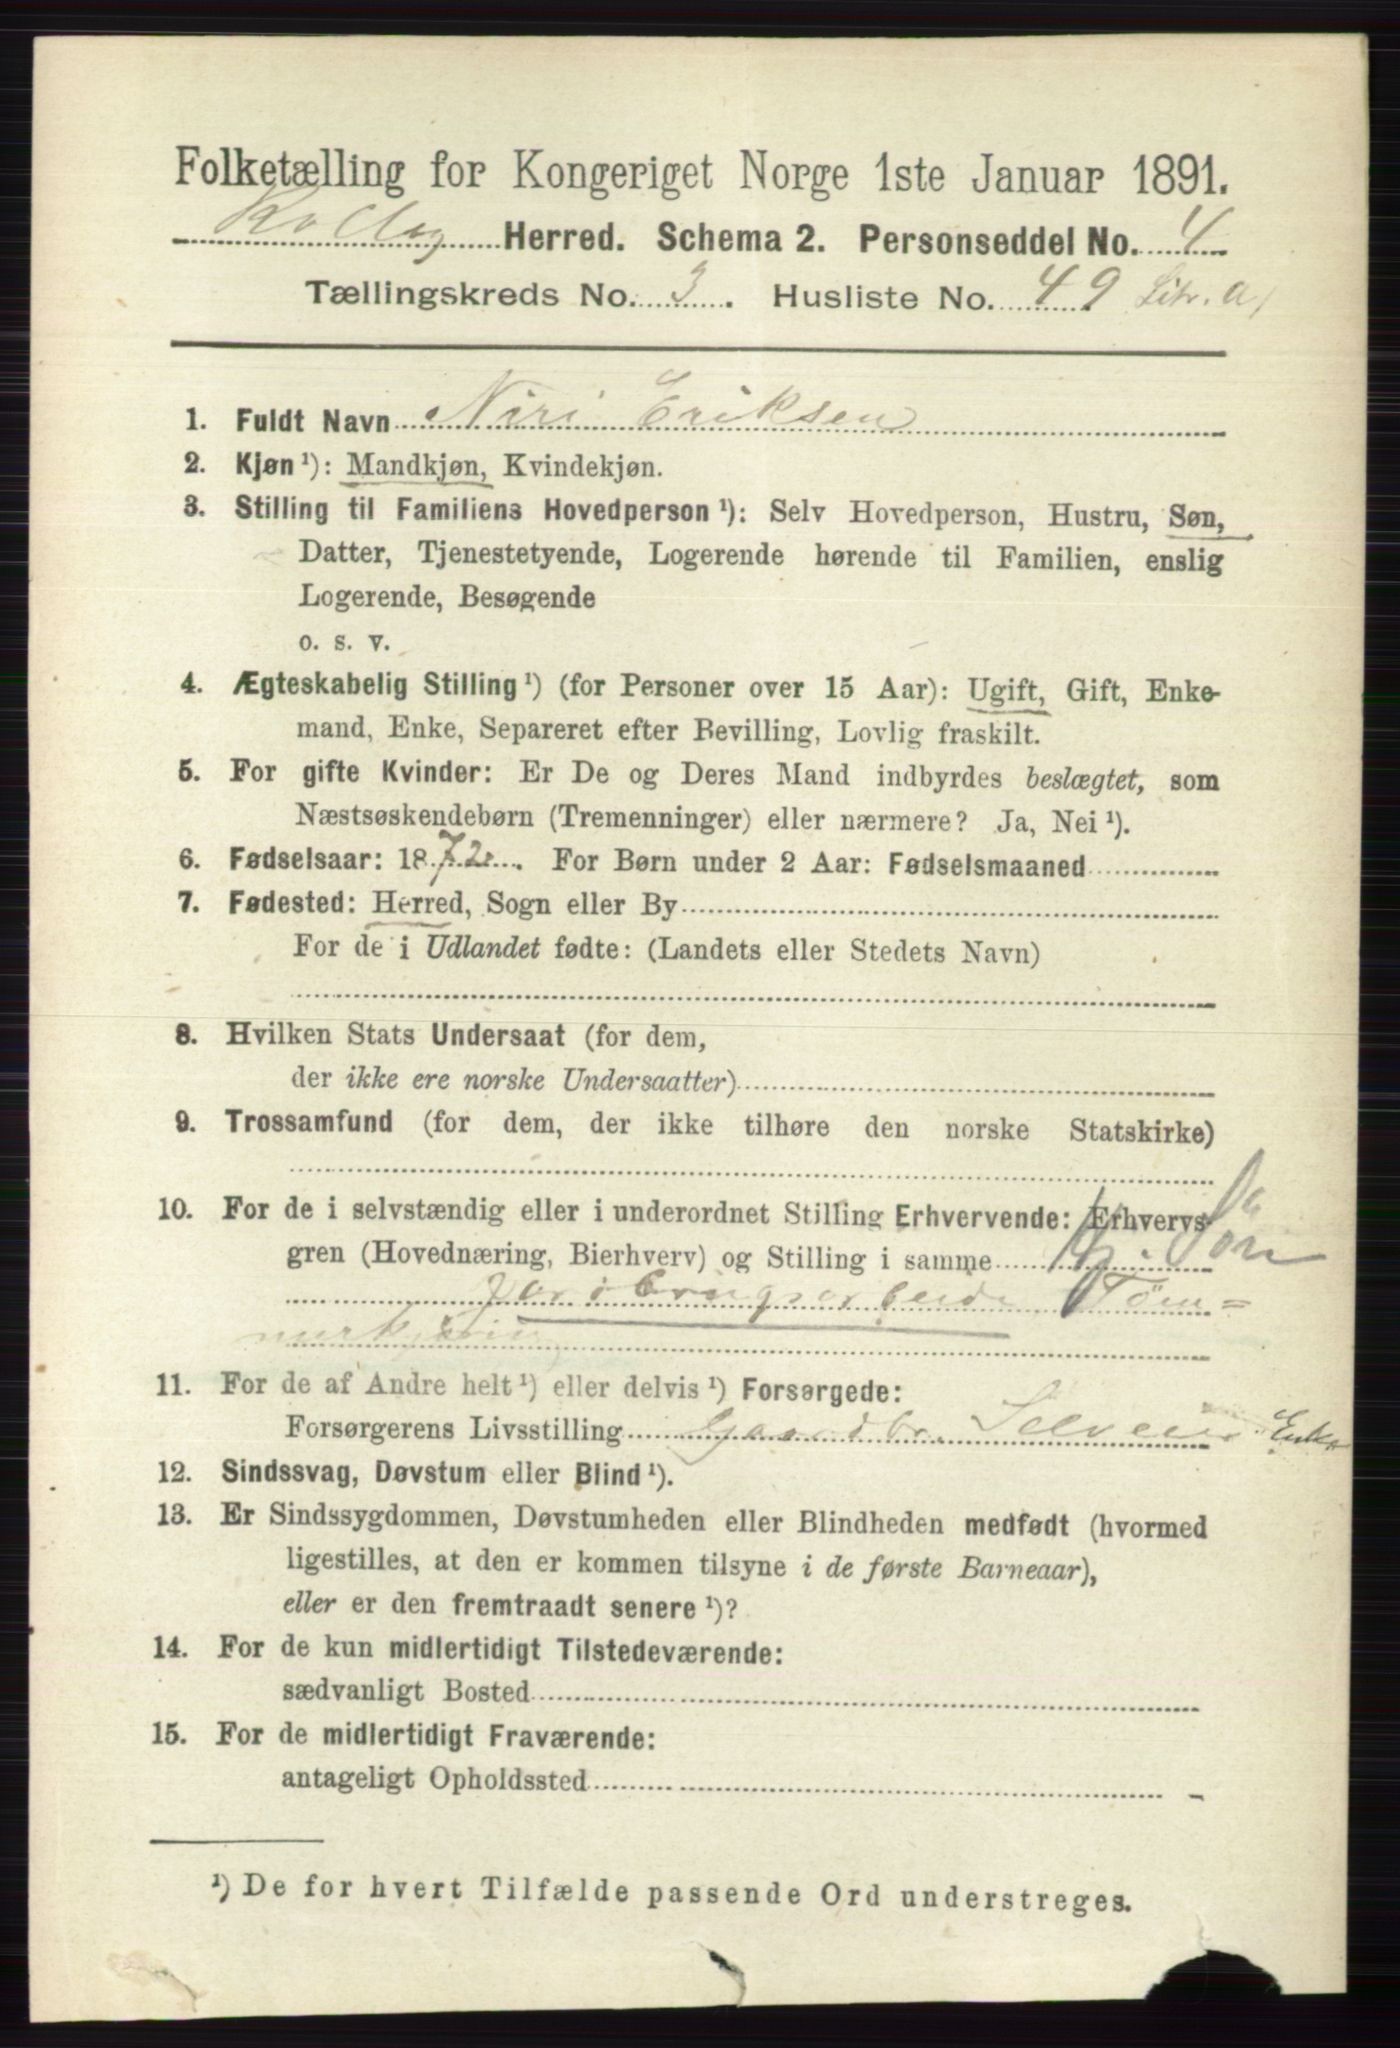 Folketælling for Kongeriget Norge 1ste Januar 1891.
Rollag Herred. Schema 2. Personseddel No. 4
Tællingskreds No. 3. Husliste No. 49 Litr. a)
1. Fuldt Navn Niri Eriksen
2. Kjøn ¹): Mandkjøn, Kvindekjøn.
3. Stilling til Familiens Hovedperson ¹): Selv Hovedperson, Hustru, Søn,
Datter, Tjenestetyende, Logerende hørende til Familien, enslig
Logerende, Besøgende
o. s. v.
4. Ægteskabelig Stilling ¹) (for Personer over 15 Aar): Ugift, Gift, Enke-
mand, Enke, Separeret efter Bevilling, Lovlig fraskilt.
5. For gifte Kvinder: Er De og Deres Mand indbyrdes beslægtet, som
Næstsøskendebørn (Tremenninger) eller nærmere? Ja, Nei ¹).
6. Fødselsaar: 1872. For Børn under 2 Aar: Fødselsmaaned
7. Fødested: Herred, Sogn eller By
For de i Udlandet fødte: (Landets eller Stedets Navn)
8. Hvilken Stats Undersaat (for dem,
der ikke ere norske Undersaatter)
9. Trossamfund (for dem, der ikke tilhøre den norske Statskirke)
10. For de i selvstændig eller i underordnet Stilling Erhvervende: Erhvervs-
gren (Hovednæring, Bierhverv) og Stilling i samme G. Søn
Jordbrugsarbeide Tøm=
murkjøring
11. For de af Andre helt ¹) eller delvis ¹) Forsørgede:
Forsørgerens Livsstilling Gaardbr. Selveier Enke
12. Sindssvag, Døvstum eller Blind ¹).
13. Er Sindssygdommen, Døvstumheden eller Blindheden medfødt (hvormed
ligestilles, at den er kommen tilsyne i de første Barneaar),
eller er den fremtraadt senere ¹)?
14. For de kun midlertidigt Tilstedeværende:
sædvanligt Bosted
15. For de midlertidigt Fraværende:
antageligt Opholdssted
¹) De for hvert Tilfælde passende Ord understreges.